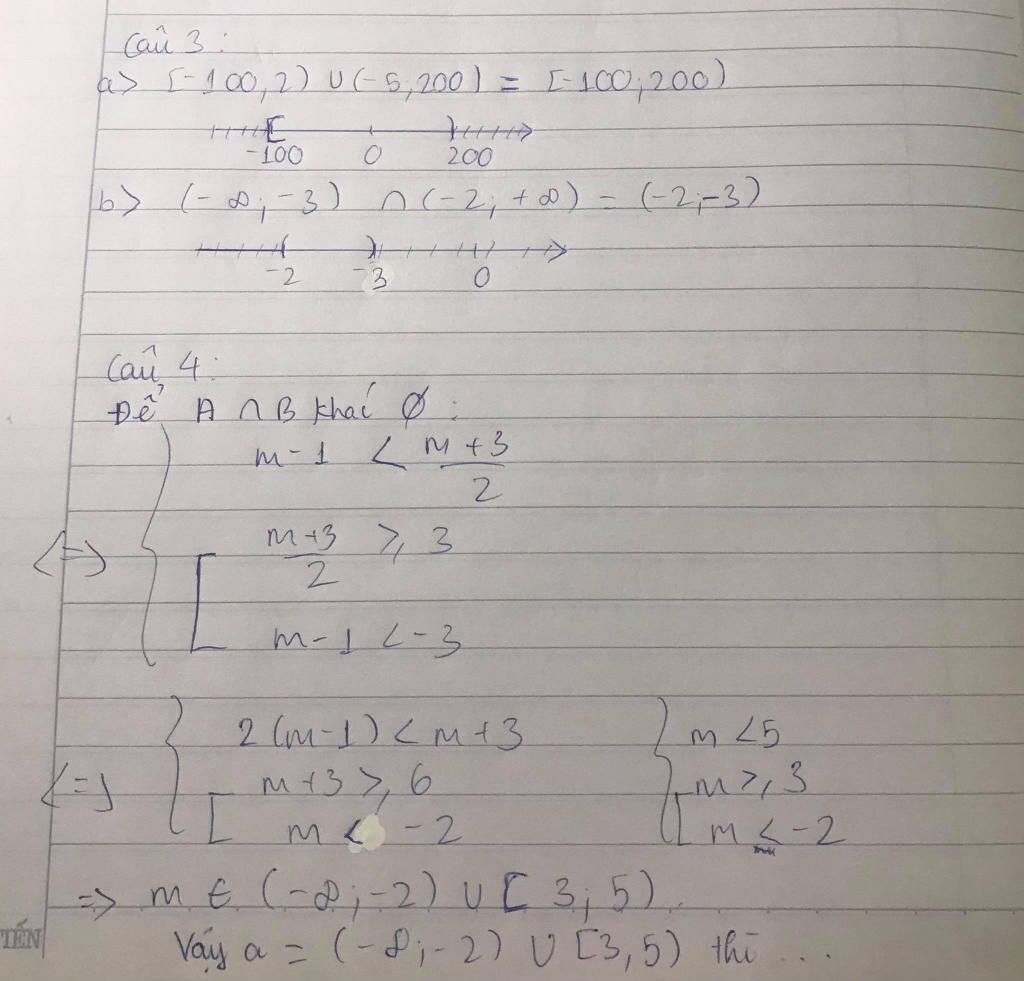 Câu 3 :
a> [-100,2) ∪ (-5,200) = [-100;200)
-100 0 200
b> (-∞; -3) ∩ (-2; +∞) = (-2;-3)
-2 -3 0
Câu 4 :
Để A ∩ B khác Ø :
m-1 < (m+3)/2
<=> (m+3)/2 ⩾ 3
m-1 < -3
2(m-1) < m+3 m < 5
<=> m+3 ⩾ 6 m ⩾ 3
m < -2 m ≤ -2
=> m ∈ (-∞; -2) ∪ [3; 5).
TẾN
Vậy a = (-∞; -2) ∪ [3,5) thì ...